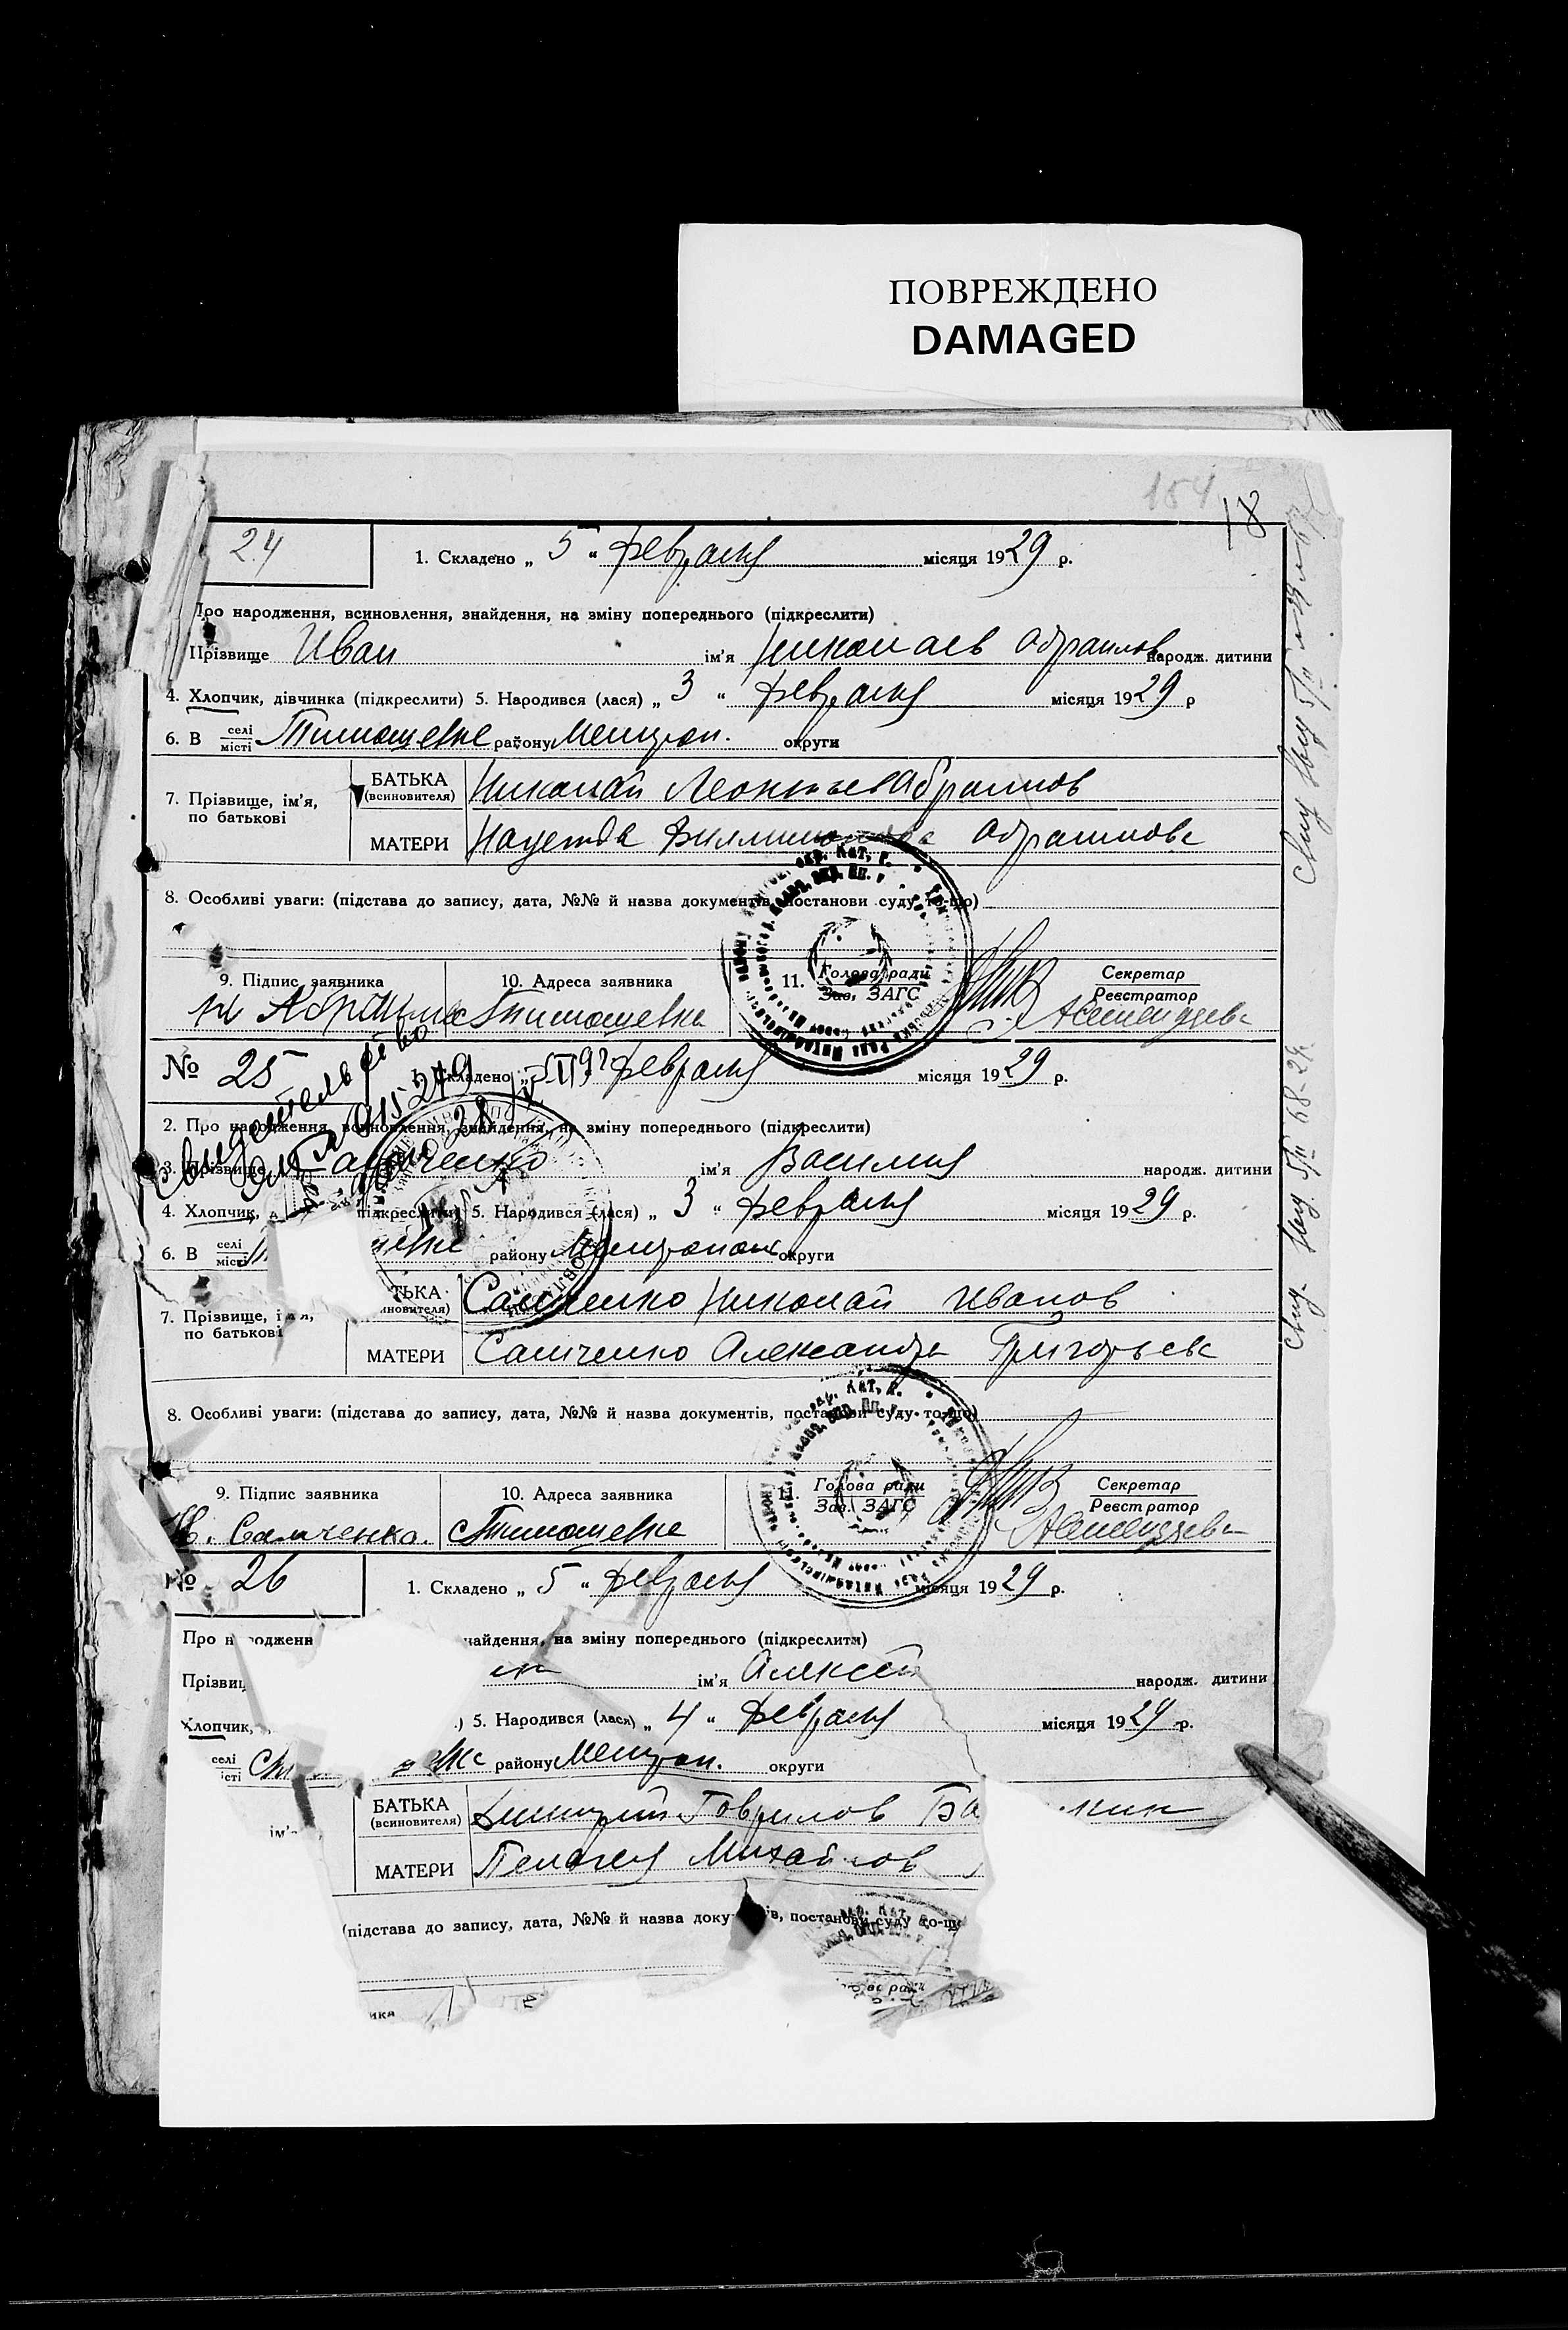 ПОВРЕЖДЕНО
DAMAGED
154
18
24
1. Складено „ 5 “ февраля місяця 1929 р.
Про народження, всиновлення, знайдення, на зміну попереднього (підкреслити)
Прізвище Иван ім'я Николаев Абрамов народж. дитини
4. Хлопчик, дівчинка (підкреслити) 5. Народився (лася) „ 3 “ февраля місяця 1929 р
6. В селі/місті Тимошевке району Мелитоп. округи
7. Прізвище, ім'я, по батькові
БАТЬКА (всиновителя) Николай Леонтьев Абрамов
МАТЕРИ Надежда Абрамова
8. Особливі уваги: (підстава до запису, дата, №№ й назва документів, постанови суду то-що)
9. Підпис заявника 10. Адреса заявника 11. Голова ради / Зав. ЗАГС Секретар / Реєстратор
Тимошевка
№ 25 1. Складено „ февраля місяця 1929 р.
Свидетельство
2. Про народження, всиновлення, знайдення, на зміну попереднього (підкреслити)
3. Прізвище Самченко ім'я Василий народж. дитини
4. Хлопчик, підкреслити) 5. Народився (лася) „ 3 “ февраля місяця 1929 р.
6. В селі/місті району Мелитополь округи
7. Прізвище, ім'я, по батькові
ТЬКА иновителя) Самченко Николай Иванов
МАТЕРИ Самченко Александра Григорьева
8. Особливі уваги: (підстава до запису, дата, №№ й назва документів, постанови суду то-що)
9. Підпис заявника 10. Адреса заявника 11. Голова ради / Зав. ЗАГС Секретар / Реєстратор
Н. Самченко. Тимошевке
№ 26 1. Складено „ 5 “ февраля місяця 1929 р.
Про н родженн найдення, на зміну попереднього (підкреслити)
Прізвищ ім'я Алексей народж. дитини
Хлопчик, .) 5. Народився (лася) „ 4 “ февраля місяця 1929 р.
селі/істі району Мелитоп. округи
ім'я
БАТЬКА (всиновителя) Димитрий Гаврилов Ба кин
МАТЕРИ Пелагея Михайлов
(підстава до запису, дата, №№ й назва доку ів, постанови суду то-що
ника